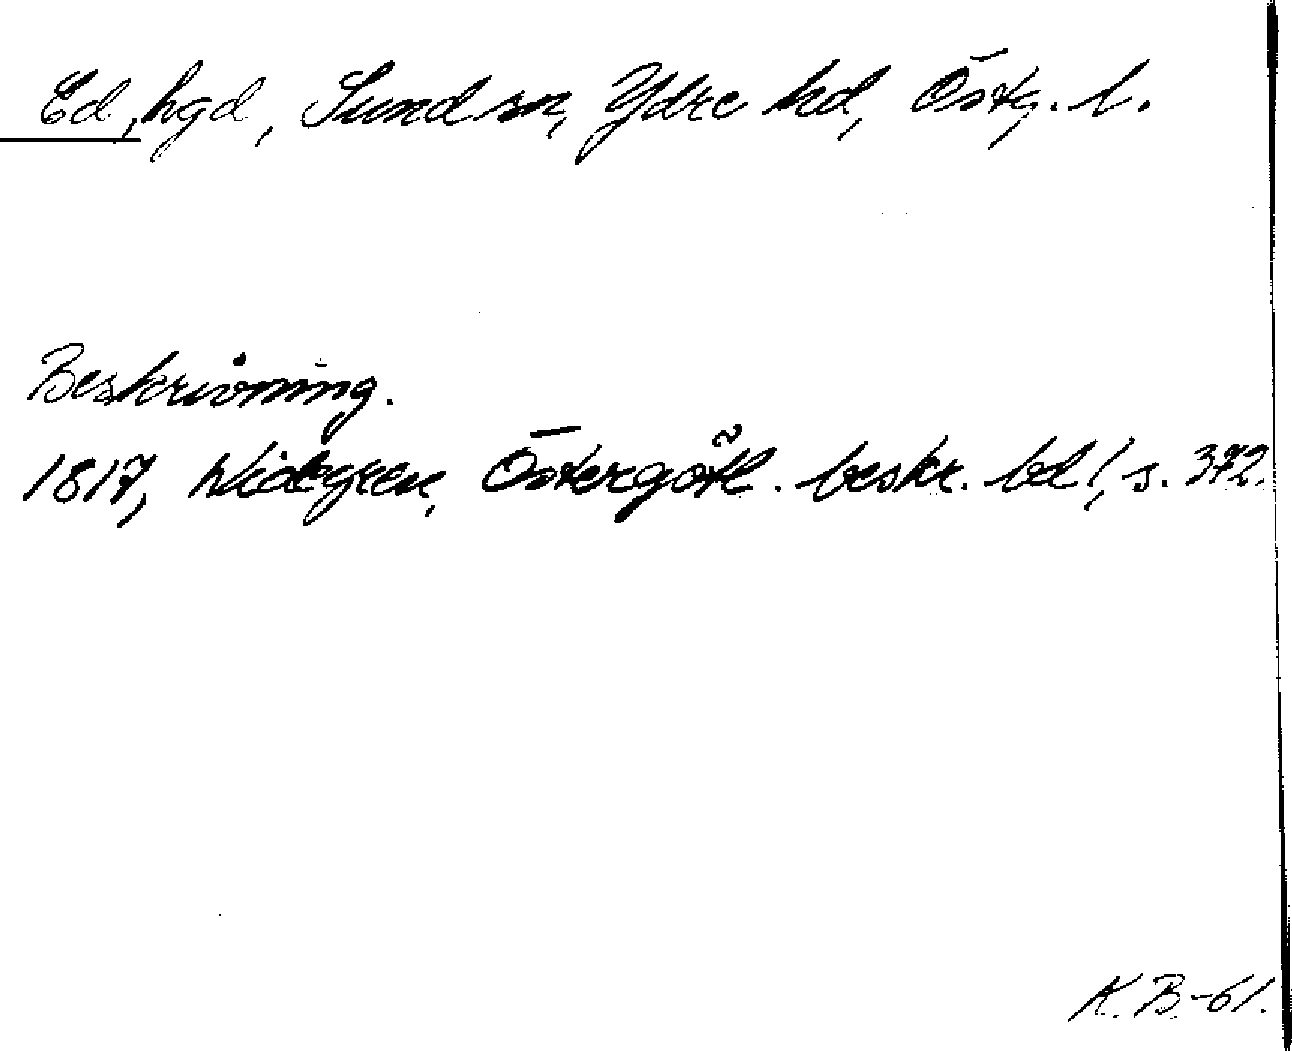 Ed, hgd, Sund sn, Ydre hd, Östg. l.
Beskrivning.
1817, Widegren, Östergötl. beskr. bd 1, s. 372.
K. B.-61.